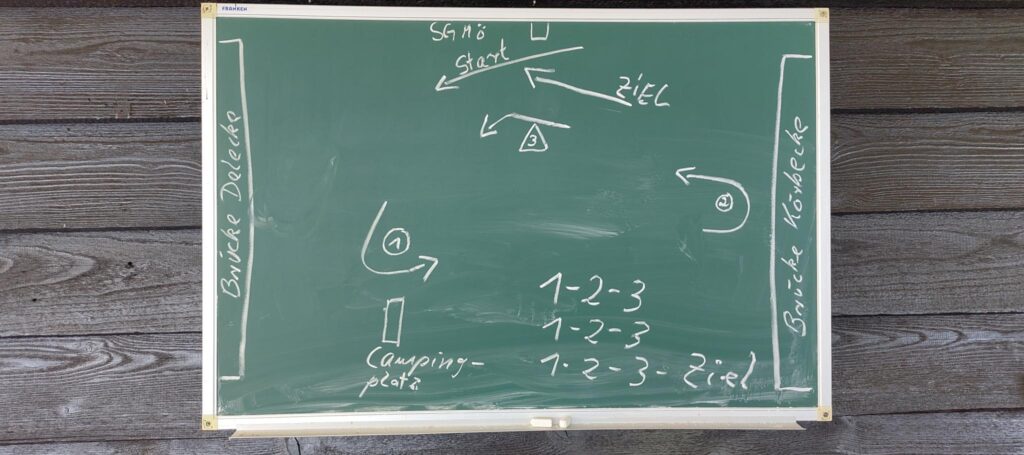 FRANKEN
SGMö
Start
ZiEL
3
Brücke Delecke
Brücke Körbecke
2
1
1-2-3
1-2-3
1-2-3-Ziel
Camping-
platz